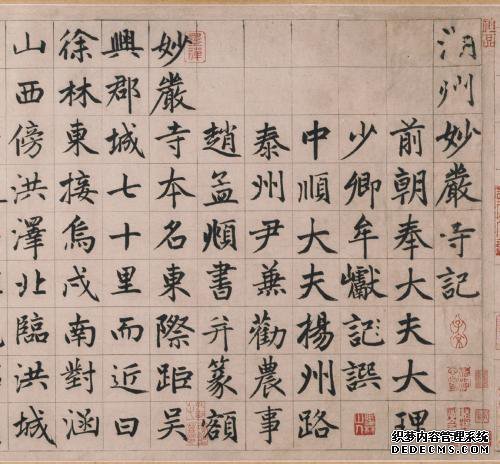 湖州妙嚴寺記
前朝奉大夫大理
少卿牟巘記譔
中順大夫楊州路
泰州尹兼勸農事
趙孟頫書并篆額
妙嚴寺本名東際距吳
興郡城七十里而近曰
徐林東接烏戍南對涵
山西傍洪澤北臨洪城
织梦内容管理系统
DEDECMS.COM